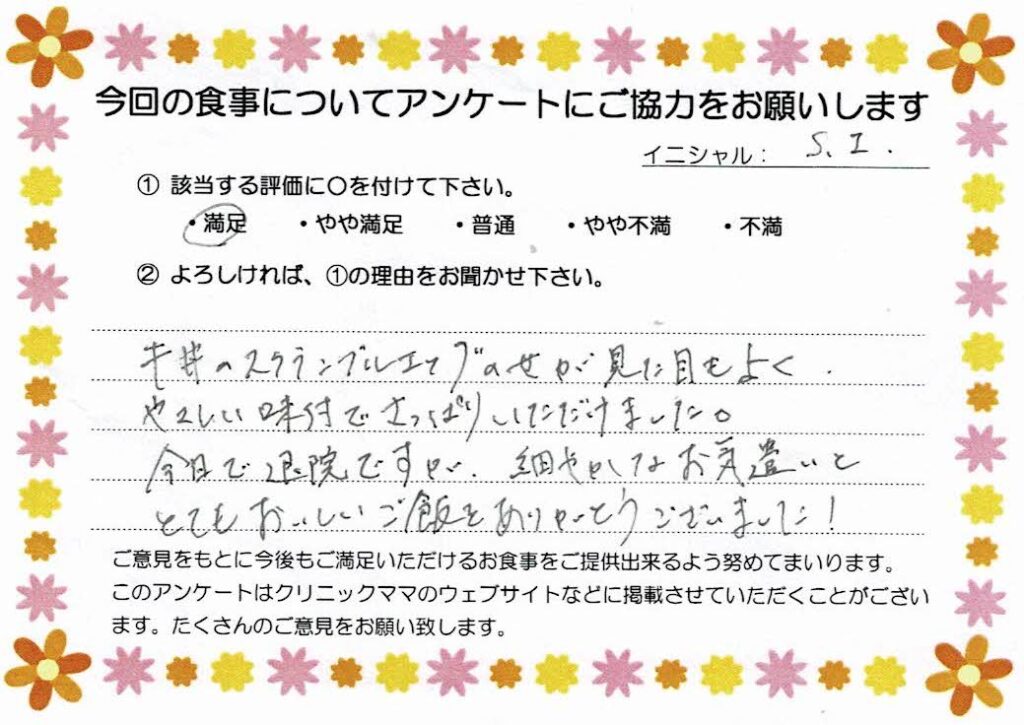 今回の食事についてアンケートにご協力をお願いします
イニシャル： S. I.
① 該当する評価に〇を付けて下さい。
・満足 ・やや満足 ・普通 ・やや不満 ・不満
② よろしければ、①の理由をお聞かせ下さい。
牛丼のスクランブルエッグのせが見た目もよく、
やさしい味付でさっぱりいただけました。
今日で退院ですが、細やかなお気遣いと
とてもおいしいご飯をありがとうございました！
ご意見をもとに今後もご満足いただけるお食事をご提供出来るよう努めてまいります。
このアンケートはクリニックママのウェブサイトなどに掲載させていただくことがござい
ます。たくさんのご意見をお願い致します。